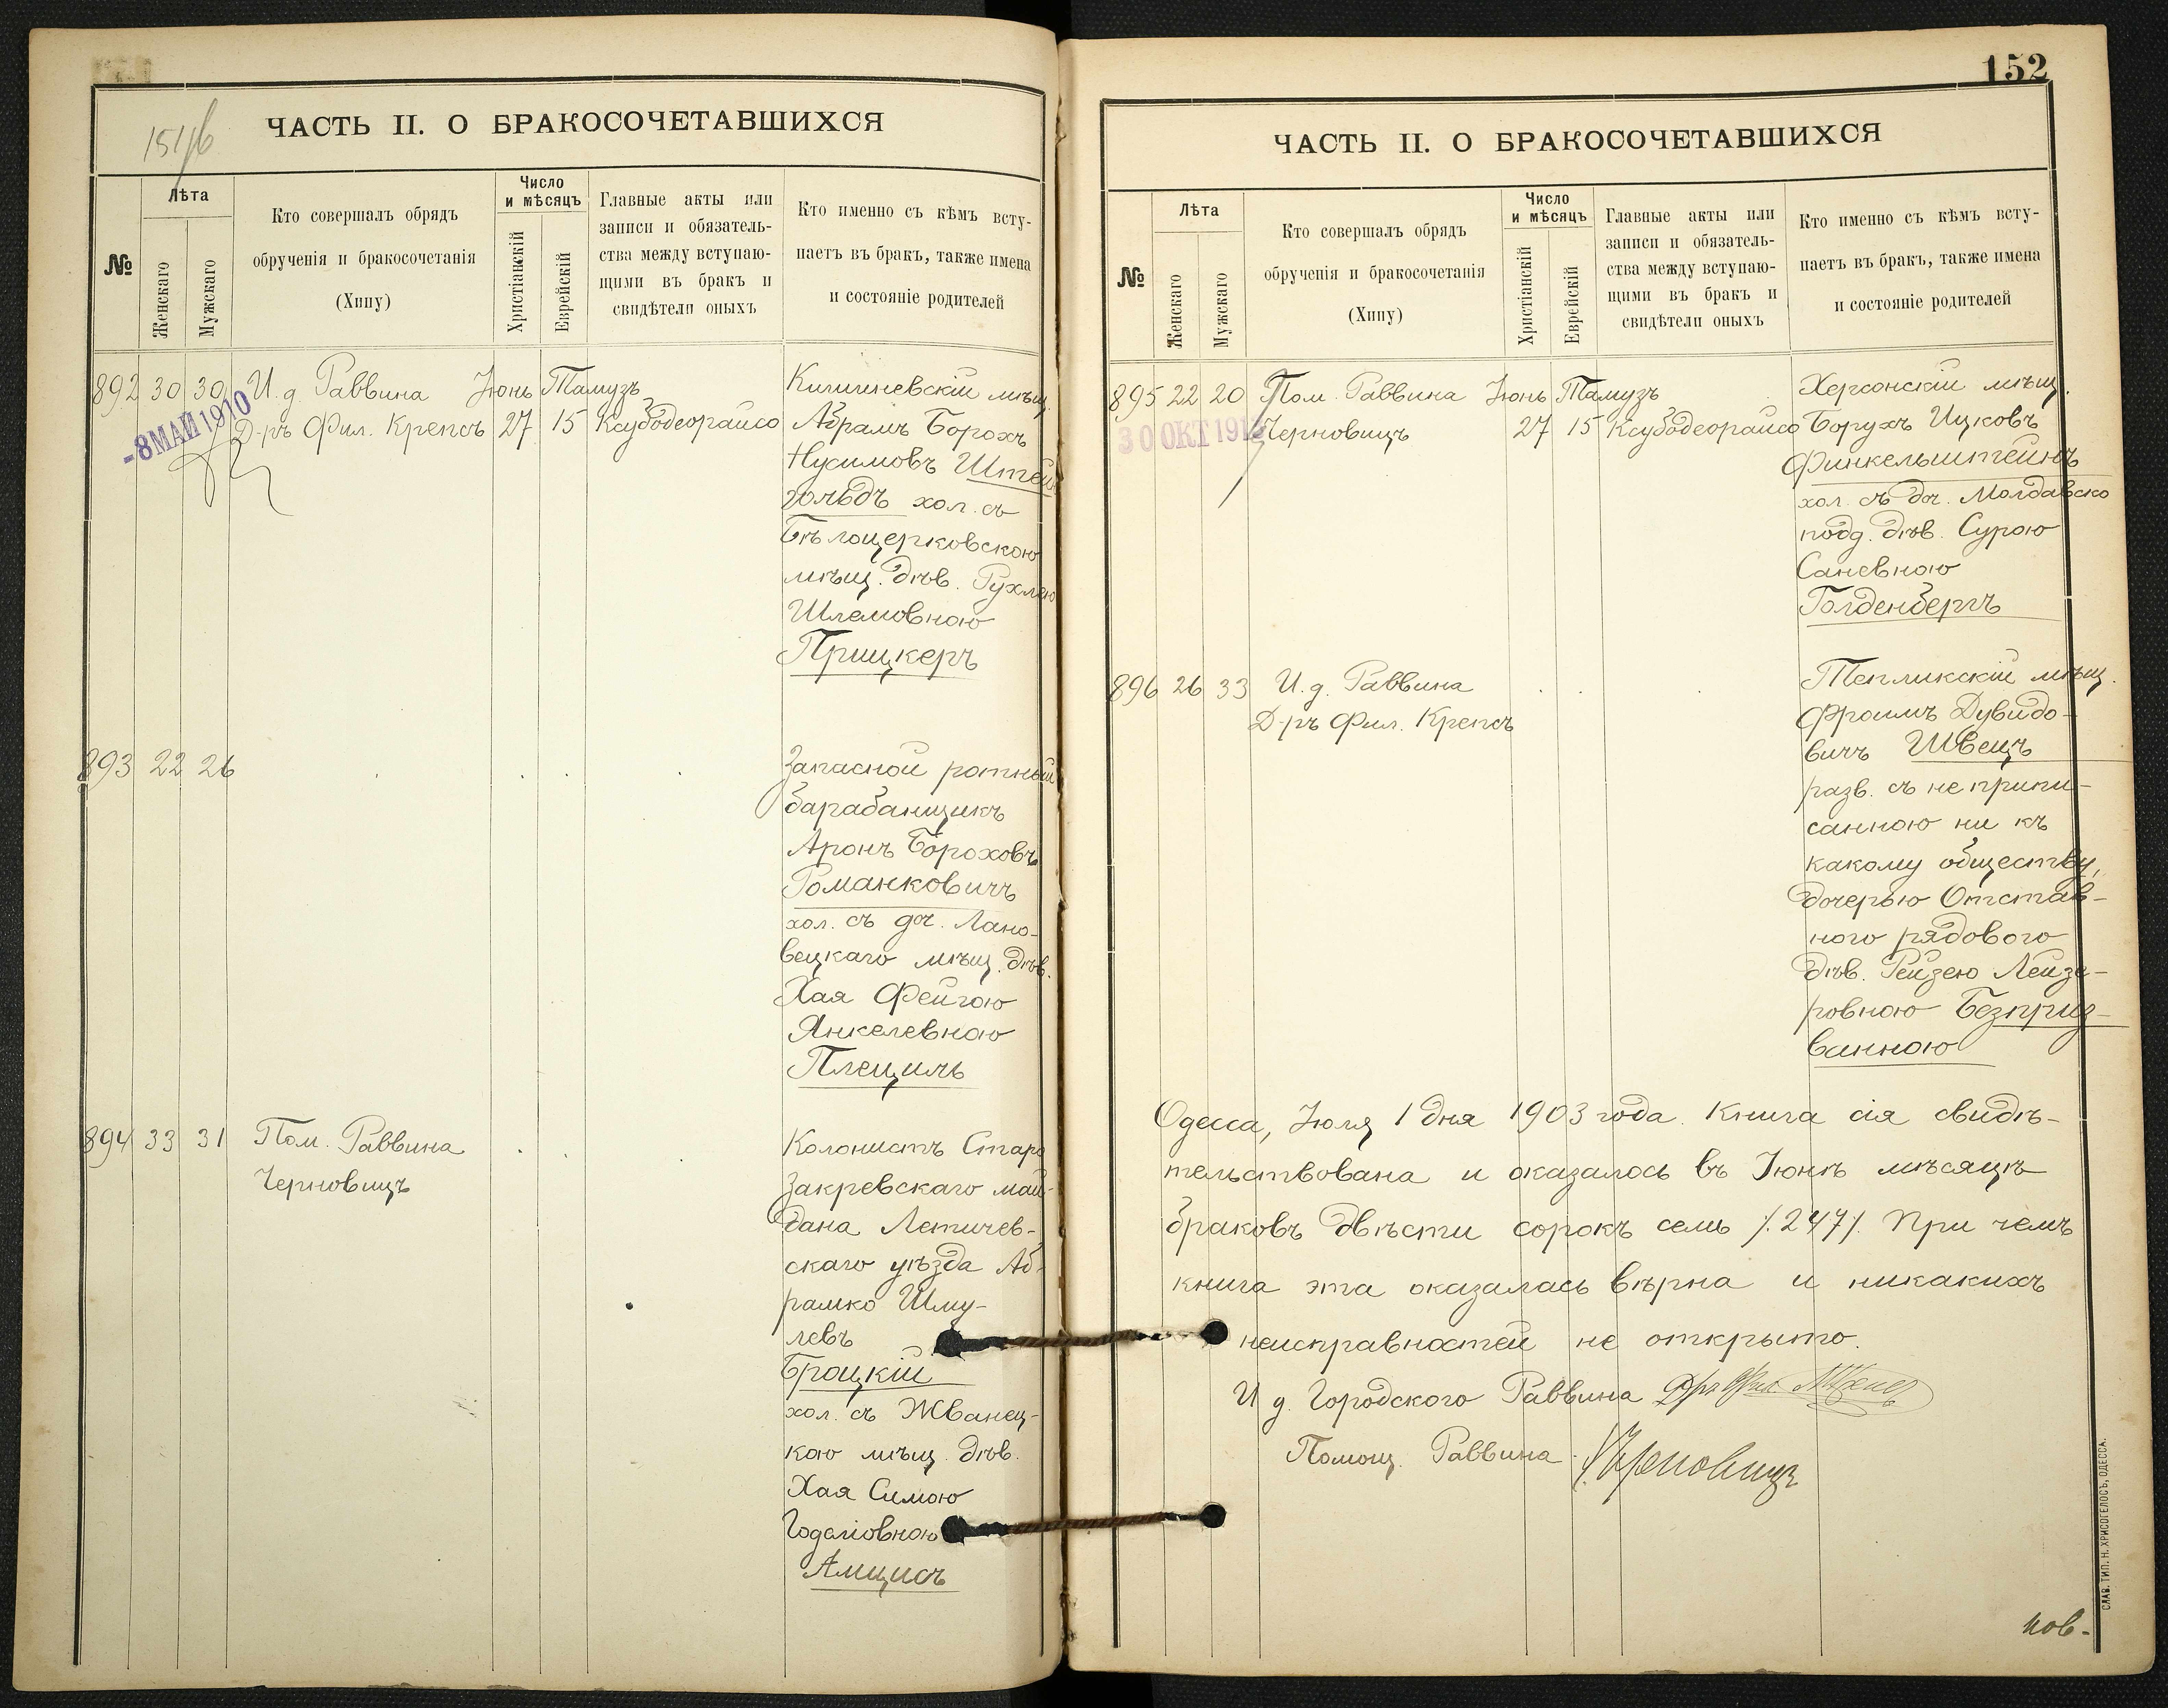 151/б
ЧАСТЬ II. О БРАКОСОЧЕТАВШИХСЯ
№
Лѣта
Женскаго
Мужскаго
Кто совершалъ обрядъ
обрученія и бракосочетанія
(Хипу)
Число
и мѣсяцъ
Христіанскій
Еврейскій
Главные акты или
записи и обязатель-
ства между вступаю-
щими въ бракъ и
свидѣтели оныхъ
Кто именно съ кѣмъ всту-
паетъ въ бракъ, также имена
и состояніе родителей
892 30 30 И. д. Раввина Іюнь Тамузъ
Д-ръ Фил. Крепсъ 27 15 Ксубодеорайсо
-8 МАЙ 1910
Кишиневскій мѣщ.
Абрамъ Борохъ
Нусимовъ Штейн
гольдъ хол. съ
Бѣлоцерковскою
мѣщ. дѣв. Рухлею
Шлемовною
Прицкеръ
893 22 26
Запасной ротный
барабанщикъ
Аронъ Бороховъ
Романковичъ
хол. съ доч. Лано-
вецкаго мѣщ. дѣв.
Хая Фейгою
Янкелевною
Плециль
894 33 31 Пом. Раввина
Черновицъ
Колонистъ Старо
Закревскаго май-
дана Летичев-
скаго уѣзда Аб-
рамко Шму-
левъ
Броцкій
хол. съ Жванец-
кою мѣщ. дѣв.
Хая Симою
Годаліовною
Амцисъ
152
ЧАСТЬ II. О БРАКОСОЧЕТАВШИХСЯ
№
Лѣта
Женскаго
Мужскаго
Кто совершалъ обрядъ
обрученія и бракосочетанія
(Хипу)
Число
и мѣсяцъ
Христіанскій
Еврейскій
Главные акты или
записи и обязатель-
ства между вступаю-
щими въ бракъ и
свидѣтели оныхъ
Кто именно съ кѣмъ всту-
паетъ въ бракъ, также имена
и состояніе родителей
895 22 20 Пом. Раввина Іюнь Тамузъ
Черновицъ 27 15 Ксубодеорайсо
30 ОКТ
Херсонскій мѣщ.
Борухъ Ицковъ
Финкельштейнъ
хол. съ доч. Молдавско
подд. дѣв. Сурою
Саневною
Голденбергъ
896 26 33 И. д. Раввина
Д-ръ Фил. Крепсъ
Тепликскій мѣщ.
Фроимъ Дувидо-
вичъ Швецъ
разв. съ не припи-
санною ни къ
какому обществу,
дочерью Отстав-
ного рядового
дѣв. Рейзею Лейзе-
ровною Безприз-
ванною
Одесса, Іюля 1 дня 1903 года. Книга сія свидѣ-
тельствована и оказалось въ Іюнѣ мѣсяцѣ
браковъ двѣсти сорокъ семь /.247/. При чемъ
книга эта оказалась вѣрна и никакихъ
неисправностей не открыто.
И д. Городского Раввина
Помощ. Раввина Черновицъ
нов-
СЛАВ. ТИП. Н. ХРИСОГЕЛОСЪ, ОДЕССА.